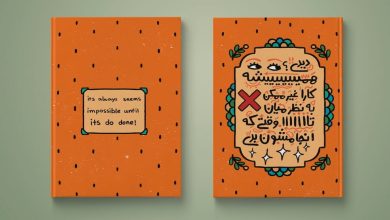 its always seems
impossible until
its do done!
دیدی؟
همیییییییشه
کارا غیرممکن
به نظر میان
تااااااا وقتی که
انجامشون بدی